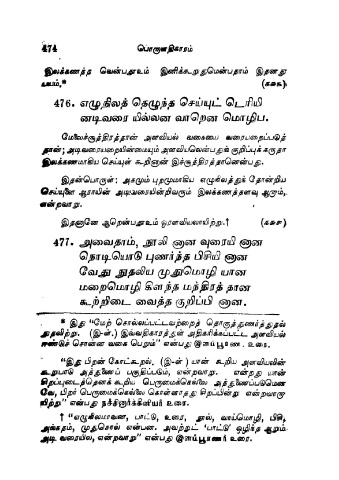 474 பொருளதிகாரம்
இலக்கணத்த வென்பதூஉம் இனிக்கூறுதுமென்பதாம் இதனது
பயம்.*
476. எழுநிலத் தெழுந்த செய்யுட் டெரியி
னடிவரை யில்லன வாறென மொழிப.
மேலைச்சூத்திரத்தான் அளவியல் வகையை வரையறைப்படுத்
தான்; அடிவரையறையின்மையும் அளவியலென்பதுக் குறிப்புக் கருதா
இலக்கணமாகிய செய்யுள் கூறினான் இச்சூத்திரத்தானென்பது.
இதன்பொருள்: அகமும் புறமுமாகிய எழுகிலத்துத் தோன்றிய
செய்யுளை ஆராயின் அடிவரையின்றிவரும் இலக்கணத்தளவு ஆறாம்,
என்றவாறு.
இதனானே ஆறென்பதூஉம் ஓரளவியலாயிற்று.†
477. அவைதாம், நூலி னான வுரையி னான
நொடியொடு புணர்ந்த பிசியி னான
வேது நுதலிய முதுமொழி யான
மறைமொழி கிளந்த மந்திரத் தான
கூற்றிடை வைத்த குறிப்பி னான.
* இது "மேற் சொல்லப்பட்டவற்றைத் தொகுத்துணர்த்துதல்
நுதலிற்று. (இ-ள்.) இவ்வதிகாரத்துள் அதிகரிக்கப்பட்ட அளவியல்
ஈண்டுச் சொன்ன வகை பெறும்" என்பது இளம்பூரண. உரை.
"இது பிறன் கோட்கூறல். (இ-ள்) யான் கூறிய அளவியலின்
கூறுபாடு அத்துணைப் பகுதிப்படும், என்றவாறு. என்றது யான்
சிறப்புடைத்தெனக் கூறிய பெருமைக்கெல்லை அத்துணைப்படுமென
வே, பிறர் பெருமைக்கெல்லை கொள்ளாதது சிறப்பின்று என்றவாறு
யிற்று" என்பது நச்சினார்க்கினியர் உரை.
† "எழுநிலமாவன, பாட்டு, உரை, நூல், வாய்மொழி, பிசி,
அங்கதம், முதுசொல் என்பன. அவற்றுட் 'பாட்டு' ஒழிந்த ஆறும்
அடி வரையில, என்றவாறு" என்பது இளம்பூரணர் உரை.